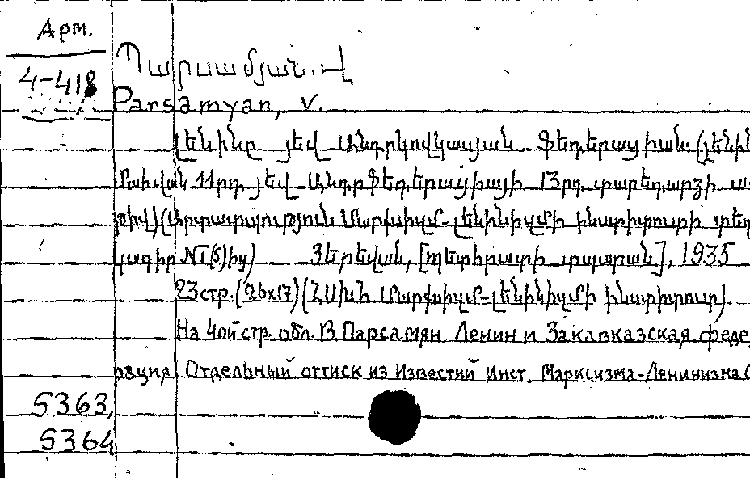 Арм.
4-418
Պարսամյան, Վ
Parsamyan, V.
Լենինը յեվ Անդրկովկասյան Ֆեդերացիան (Լենի
մահվան 11րդ յեվ Անդրֆեդերացիայի 13րդ տարեդարձի ա
թիվ) (Արտատպություն Մարքսիզմ-լենինիզմի ինստիտուտի տեղ
կագիր №1(5)ից) Յերեվան, [պետհրատի տպարան], 1935
23 стр. (26x17) (ՀՍԽՀ Մարքսիզմ-լենինիզմի ինստիտուտ)
На 4ой стр. обл. В. Парсамян Ленин и Закавказская феде
рация. Отдельный оттиск из Известий Инст. Марксизма-Ленинизма
5363,
5364